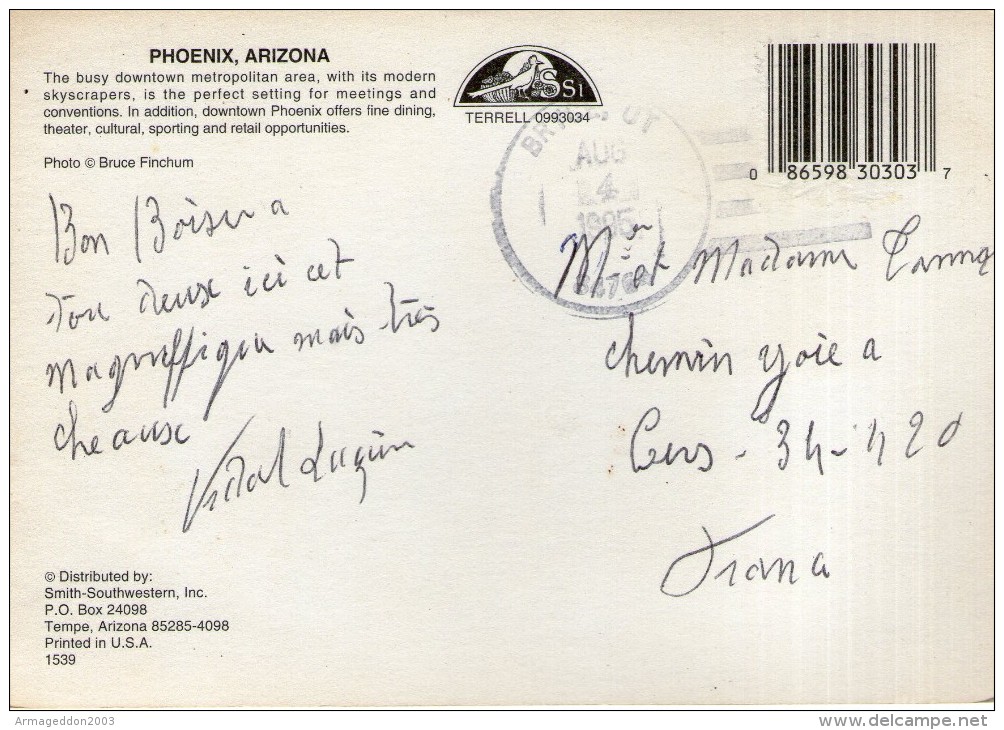 PHOENIX, ARIZONA
The busy downtown metropolitan area, with its modern
skyscrapers, is the perfect setting for meetings and
conventions. In addition, downtown Phoenix offers fine dining,
theater, cultural, sporting and retail opportunities.
Photo © Bruce Finchum
SSI
TERRELL 0993034
AUG
1995
0 86598 30303 7
Bon
tou deuse ici cet
magniffique mais très
cheause
Vidal
Mr et Madame
chemin
Cers - 34-420
Frana
© Distributed by:
Smith-Southwestern, Inc.
P.O. Box 24098
Tempe, Arizona 85285-4098
Printed in U.S.A.
1539
Armageddon2003
www.delcampe.net